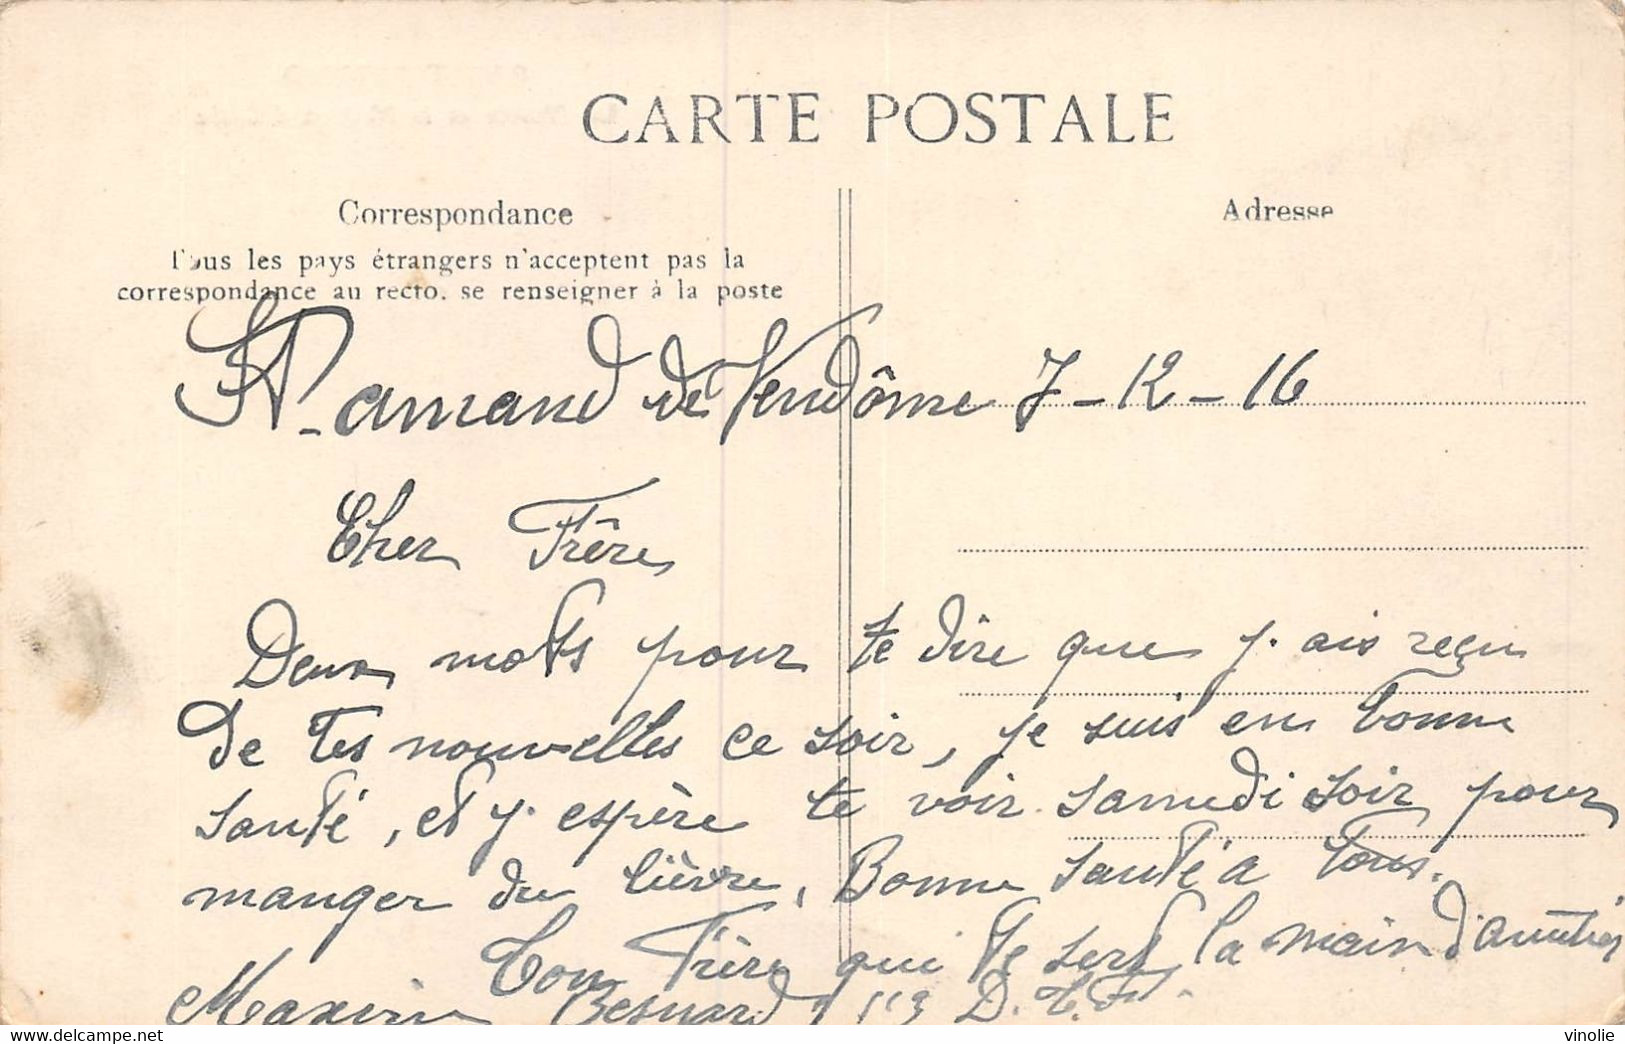 CARTE POSTALE
Correspondance
Adresse
Tous les pays étrangers n'acceptent pas la
correspondance au recto. se renseigner à la poste
St-amand de Vendôme 7-12-16
Cher Frêre
Deux mots pour te dire que j'ais reçu
de tes nouvelles ce soir, je suis en bonne
santé, et j'espère te voir samedi soir pour
manger du lièvre, Bonne santé a tous.
Ton Frère qui te sert la main d'amitiés
Besnard D.
vinolie